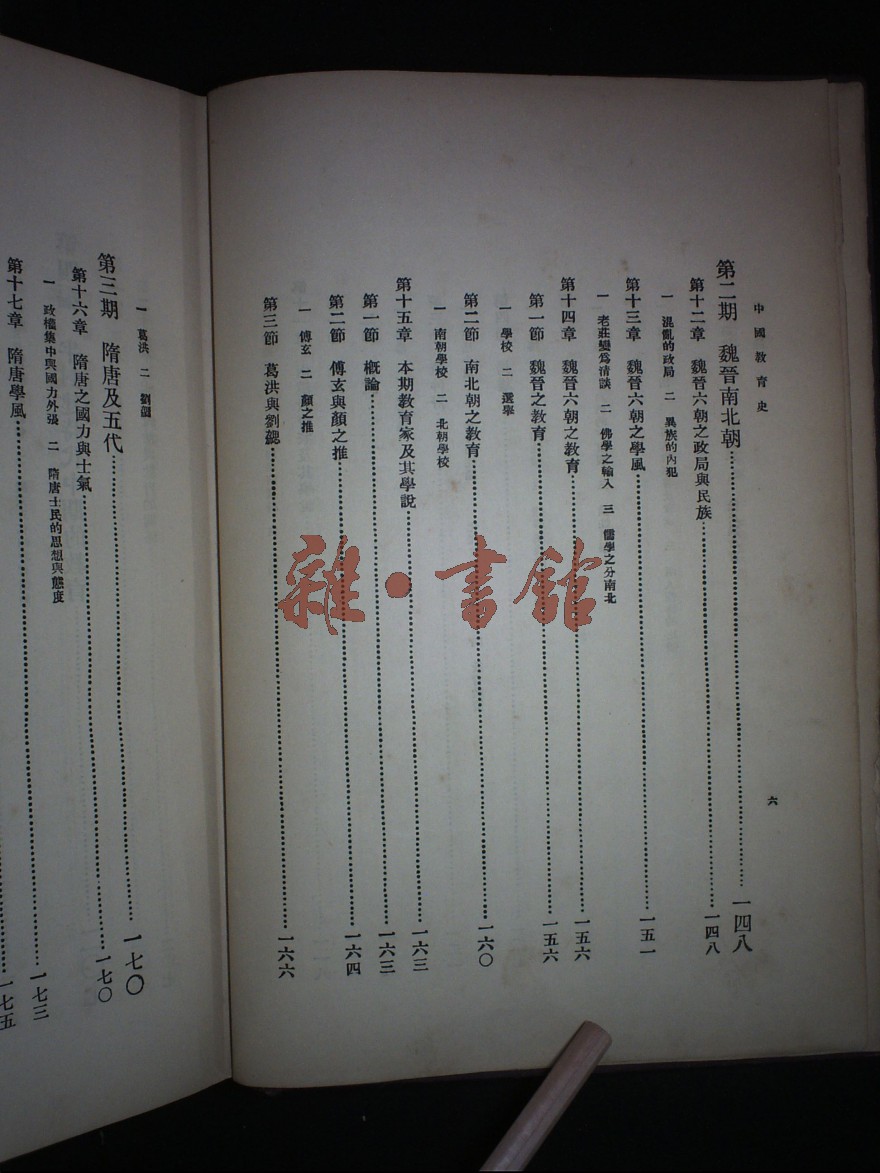 中國教育史
六
第二期　魏晉南北朝……一四八
第十二章　魏晉六朝之政局與民族……一四八
一　混亂的政局　二　異族的內犯
第十三章　魏晉六朝之學風……一五一
一　老莊變爲清談　二　佛學之輸入　三　儒學之分南北
第十四章　魏晉六朝之教育……一五六
第一節　魏晉之教育……一五六
一　學校　二　選舉
第二節　南北朝之教育……一六〇
一　南朝學校　二　北朝學校
第十五章　本期教育家及其學說……一六三
第一節　概論……一六三
第二節　傅玄與顏之推……一六四
一　傅玄　二　顏之推
第三節　葛洪與劉勰……一六六
一　葛洪　二　劉勰
第三期　隋唐及五代……一七〇
第十六章　隋唐之國力與士氣……一七〇
一　政權集中與國力外張　二　隋唐士民的思想與態度……一七三
第十七章　隋唐學風……一七五
雜·書館